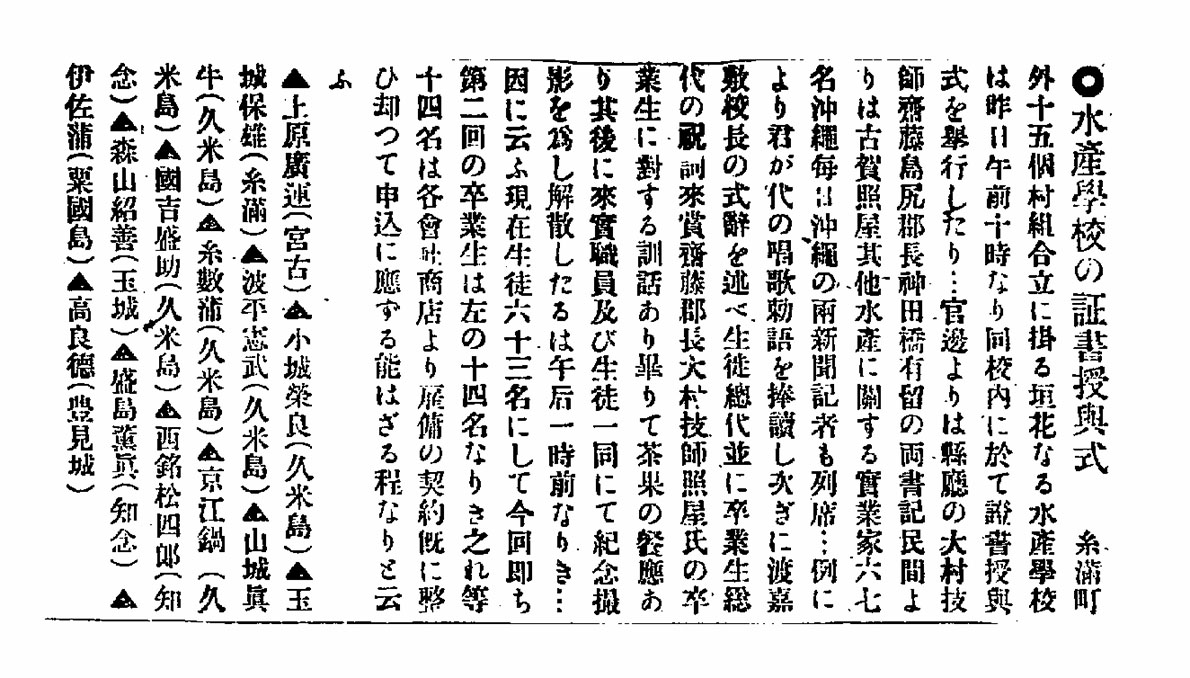 ●水產學校の証書授與式　糸滿町
外十五個村組合立に掛る垣花なる水產學校
は昨日午前十時なり同校內に於て證書授與
式を擧行したり…官邊よりは縣廳の大村技
師齋藤島尻郡長神田橋有留の両書記民間よ
りは古賀照屋其他水產に關する實業家六七
名沖繩每日沖繩の兩新聞記者も列席…例に
より君が代の唱歌勅語を捧讀し次ぎに渡嘉
敷校長の式辭を述べ生徒總代並に卒業生総
代の祝詞來賞齋藤郡長大村技師照屋氏の卒
業生に對する訓話あり畢りて茶果の餐應あ
り其後に來實職員及び生徒一同にて紀念撮
影を爲し解散したるは午后一時前なりき…
因に云ふ現在生徒六十三名にして今回即ち
第二回の卒業生は左の十四名なりき之れ等
十四名は各會社商店より雇傭の契約既に整
ひ却つて申込に應ずる能はざる程なりと云
ふ
▲上原廣運(宮古)▲小城榮良(久米島)▲玉
城保雄(糸滿)▲波平憲武(久米島)▲山城眞
牛(久米島)▲糸數蒲(久米島)▲京江鍋　(久
米島)▲國吉盛助(久米島)▲西銘松四郎(知
念)▲森山紹善(玉城)▲盛島薰眞(知念)　▲
伊佐蒲(粟國島)▲高良德(豊見城)